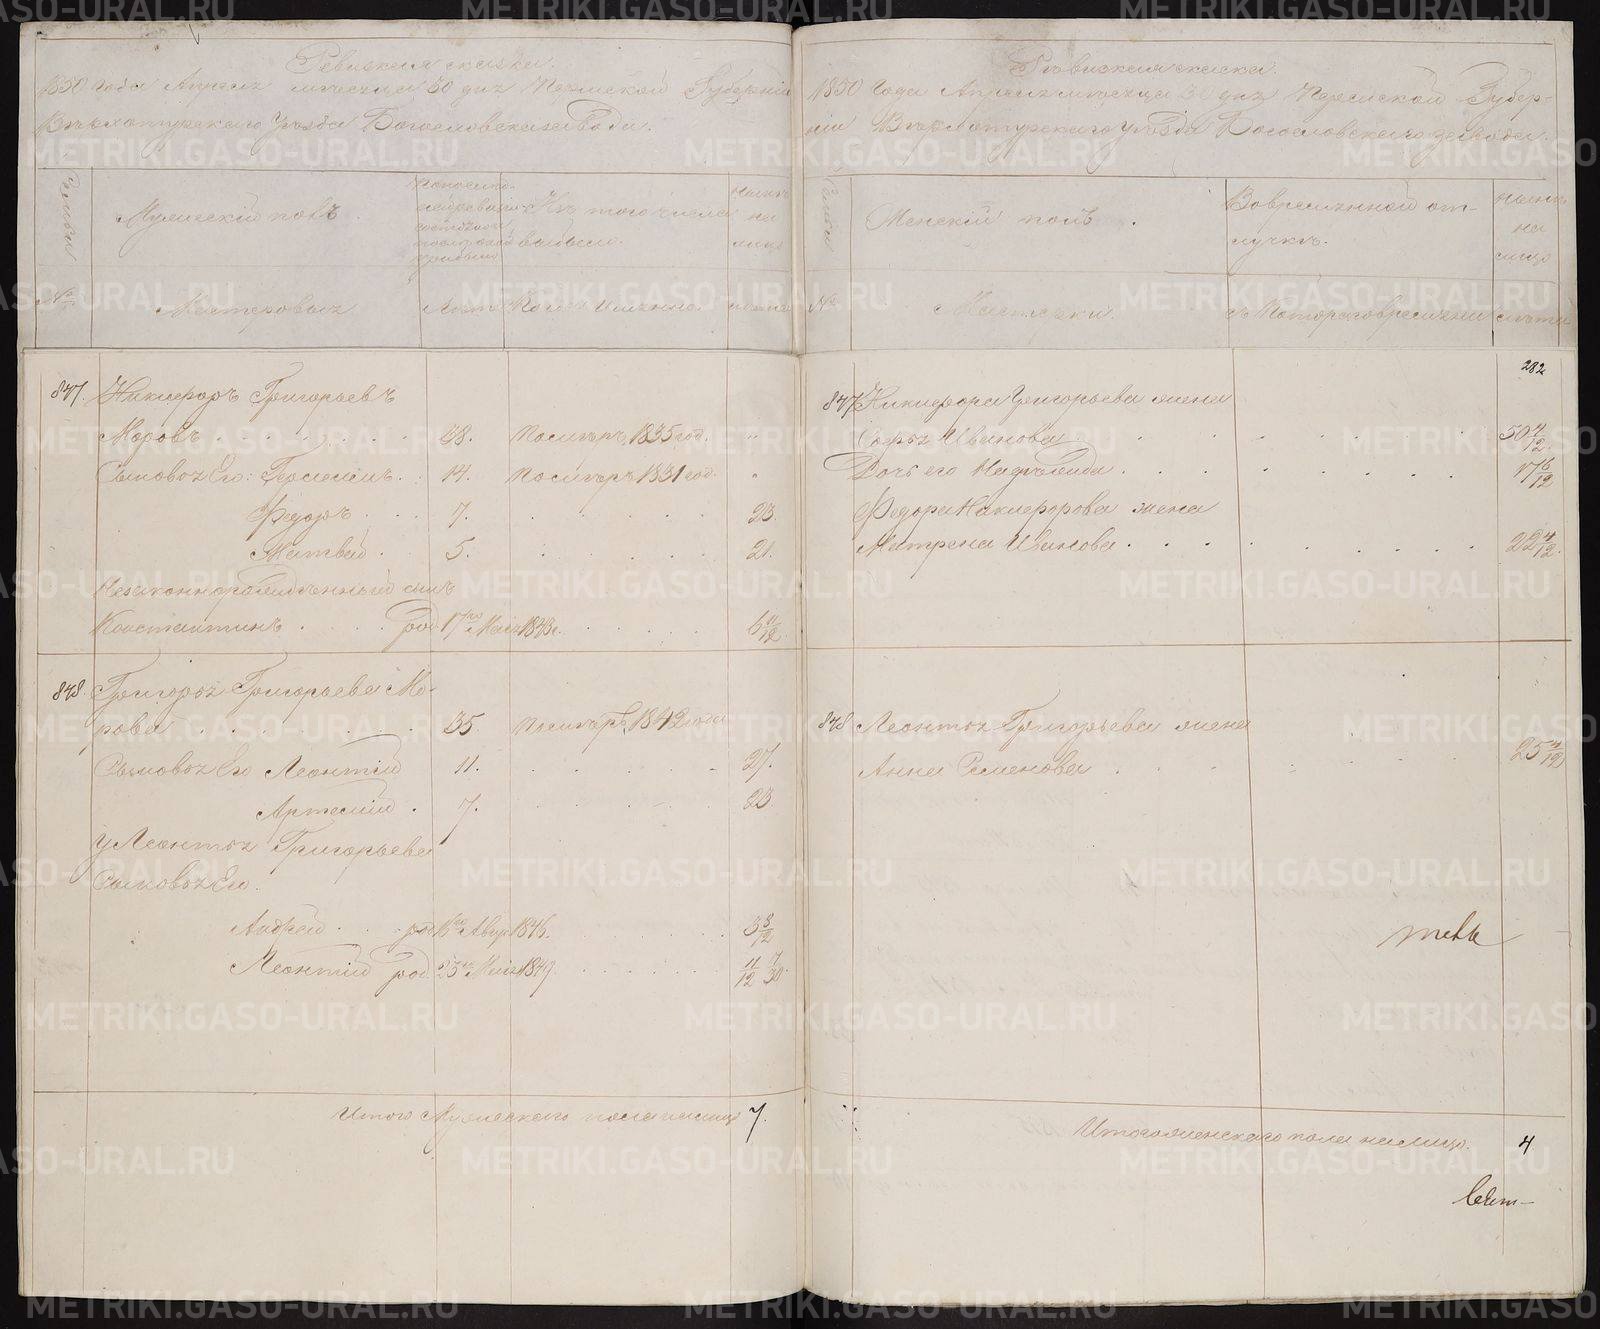 Ревизкая сказка.
1850 года Апреля месеца 30 дня Пермской Губернии
Верхотурского Уезда Богословскаго завода.
Семьи
Мужеский полъ.
Изъ того числа выбыло.
Ныне на лицо
№
Мастеровыя
Лета
Когда именно.
лета
847. Никифоръ Григорьевъ
Моровъ . . . . . . 38. Посмеръ, 1835 год. "
Сыновья Его: Герасимъ. 14. Посмеръ 1831 год. "
Федоръ . . . 7. . . . . . 23.
Матвей . 5. . . . . . 21.
Незаконнорожденный сынъ
Константинъ . . . . род 17го Мая 1843г. . . . . . 6 11/12
848. Григорья Григорьева Мо-
рова . . . . . . . 35. Посмеръ, 1842 года
Сыновья Его Леонтий 11. . . . . . 27.
Артемий . 7. . . . . 23
У Леонтья Григорьева
Сыновья Его.
Андрей . . . род 16го Авгу 1846. . . . . . 3 8/12
Леонтий род 23го Мая 1849. . . . . . 11/12 7/30.
Итого Мужескаго пола налицо 7.
Ревизкая сказка.
1850 Года Апреля месеца 30 дня Пермской Губер-
нии Верхотурскаго уезда Богословскаго завода.
Семьи
Женский полъ.
Вовременной от-
лучке.
Ныне
на
лицо
№
Мастерки.
съ Котораго времени
лета
282
847 Никифора Григорьева жена
Софья Иванова . . . . . . . 50 4/12.
Дочь его Надежда . . . . . . . . 17 6/12
Федора Никифорова жена
Матрена Иванова . . . . . . . . 22 4/12.
848 Леонтья Григорьева жена
Анна Семенова . . . . . . 25 4/12
Итого женскаго пола налицо. 4
METRIKI.GASO-URAL.RU